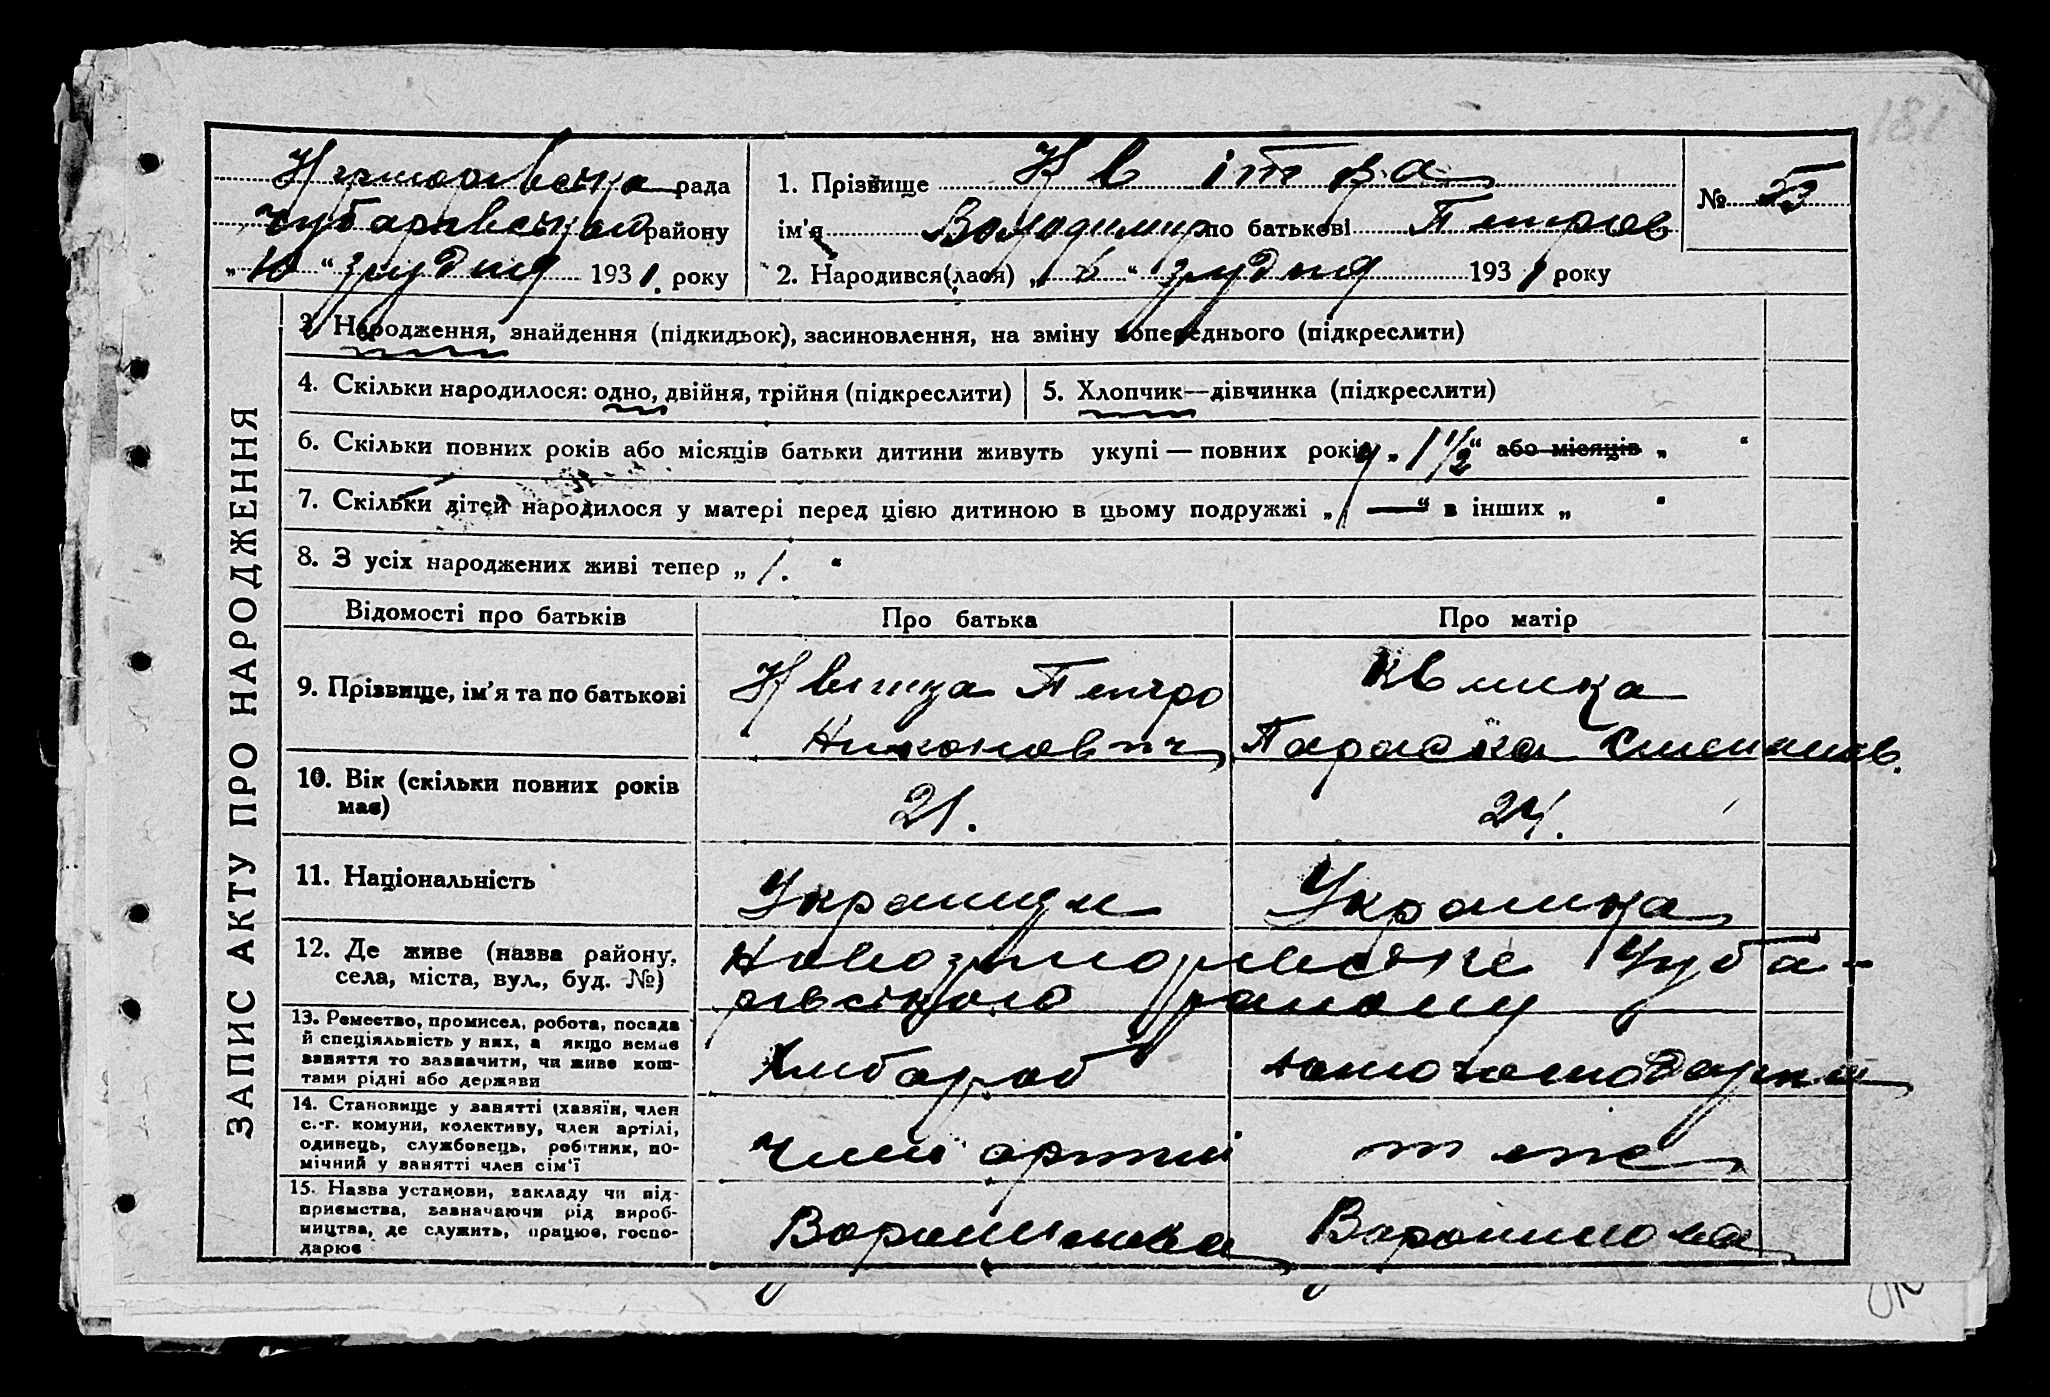 181
рада
Чубарівського району
„10“ грудня 1931. року
1. Прізвище Квітка
ім'я Володимир по батькові Петров
2. Народився(лася) „ “ грудня 1931 року
№ 53
ЗАПИС АКТУ ПРО НАРОДЖЕННЯ
3. Народження, знайдення (підкидьок), засиновлення, на зміну попереднього (підкреслити)
4. Скільки народилося: одно, двійня, трійня (підкреслити)
5. Хлопчик—дівчинка (підкреслити)
6. Скільки повних років або місяців батьки дитини живуть укупі — повних років „1 1/2“ або місяців „ “
7. Скільки дітей народилося у матері перед цією дитиною в цьому подружжі „ — “ в інших „ “
8. З усіх народжених живі тепер „ 1. “
Відомості про батьків
Про батька
Про матір
9. Прізвище, ім'я та по батькові
Квітка Петро
Никонович
Квитка
Параска Степанов.
10. Вік (скільки повних років
має)
21.
24.
11. Національність
Українец
Українка
12. Де живе (назва району,
села, міста, вул., буд. №)
Чуба-
рівського району
13. Ремество, промисел, робота, посада
й спеціяльність у них, а якщо немає
заняття то зазначити, чи живе кош-
тами рідні або держави
Хлібороб
домогосподарка
14. Становище у занятті (хазяїн, член
с.-г. комуни, колективу, член артілі,
одинець, службовець, робітник, по-
мічний у занятті член сім'ї
Член артілі
теж
15. Назва установи, закладу чи під-
приємства, зазначаючи рід вироб-
ництва, де служить, працює, госпо-
дарює
Ворошилова
Ворошилова